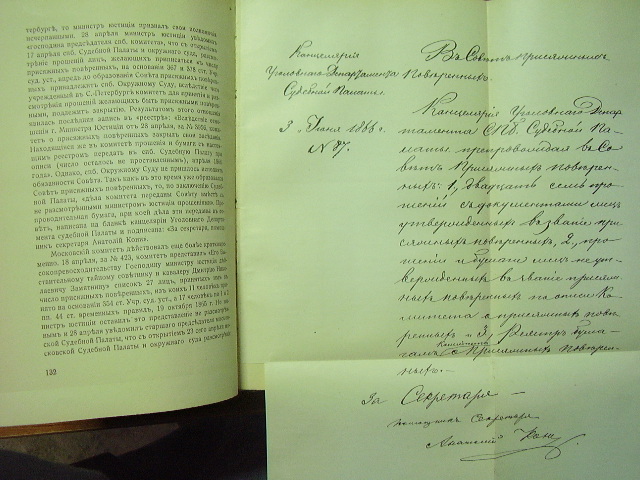 тербургѣ, то министръ юстиціи призналъ свои полномочія
исчерпанными. 28 апрѣля министръ юстиціи увѣдомилъ
«господина предсѣдателя спб. комитета», что съ открытіемъ
17 апрѣля спб. Судебной Палаты и окружного суда, разсмо-
трѣніе прошеній лицъ, желающихъ приписаться въ число
присяжныхъ повѣренныхъ, на основаніи 367 и 378 ст. Учр.
суд. уст., впредь до образованія Совѣта присяжныхъ повѣ-
учрежденный въ С.-Петербургѣ комитетъ для
смотрѣнія прошеній желающихъ быть присяжными повѣрен-
ными, подлежитъ закрытію. Результатомъ этого отношенія
явилась послѣдняя запись въ «реестрѣ»: «Вслѣдствіе отно-
шенія г. Министра Юстиціи отъ 28 апрѣля, за № 5050, коми-
тетъ о присяжныхъ повѣренныхъ закрылъ свои засѣданія.
Находящіяся же въ комитетѣ прошенія и бумаги съ настоя-
щимъ реестромъ передать въ спб. Судебную Палату
(число осталось не проставленнымъ), апрѣля 1866
года». Однако, спб. Окружному Суду не пришлось исполнять
обязанности Совѣта. Такъ какъ въ это время уже образовался
Совѣтъ присяжныхъ повѣренныхъ, то, по заключенію Судеб-
ной Палаты, «дѣла комитета переданы Совѣту вмѣстѣ съ
не разсмотрѣнными министромъ юстиціи прошеніями». Пре-
проводительная бумага, при коей дѣла эти переданы въ
вѣтъ, написана на бланкѣ канцеляріи Уголовнаго Департа-
мента судебной Палаты и подписана: «За секретаря, помощ-
никъ секретаря Анатолій Кони».
Московскій комитетъ дѣйствовалъ еще болѣе кратковре-
менно. 18 апрѣля, за № 423, комитетъ представилъ «Его Вы-
сокопревосходительству Господину министру юстиціи дѣй-
ствительному тайному совѣтнику и кавалеру Дмитрію Нико-
лаевичу Замятнину» списокъ 27 лицъ, принятыхъ имъ въ
число присяжныхъ повѣренныхъ, изъ коихъ 11 человѣкъ
на основаніи 354 ст. Учр. суд. уст., а 17 человѣкъ на
пп. 44 ст. временныхъ правилъ, 19 октября 1865 г. Но ми-
нистръ юстиціи оставилъ это представленіе не разсмотрѣн-
нымъ и 28 апрѣля увѣдомилъ старшаго предсѣдателя москов-
ской Судебной Палаты, что съ открытіемъ 23 сего апрѣля мо-
сковской Судебной Палаты и окружнаго суда разсмотрѣніе
132
Канцелярія
Уголовнаго Департамента
Судебной Палаты
3 Іюня 1866 г.
№ 87.
Въ Совѣтъ Присяжныхъ
Повѣренныхъ.
Канцелярія Уголовнаго Депар-
тамента СПб. Судебной Па-
латы препровождая въ Со-
вѣтъ Присяжныхъ повѣрен-
ныхъ: 1, двадцать семь про-
шеній съ документами лицъ
утвержденныхъ въ званіе при-
сяжныхъ повѣренныхъ, 2, про-
шенія и бумаги лицъ не ут-
вержденныхъ въ званіе присяж-
ныхъ повѣренныхъ по описи Ко-
митета о присяжныхъ повѣ-
ренныхъ и 3, Реэстръ бума-
гамъ Комитета о Присяжныхъ Повѣрен-
ныхъ.
За Секретаря
помощникъ Секретаря
Анатолій Кони